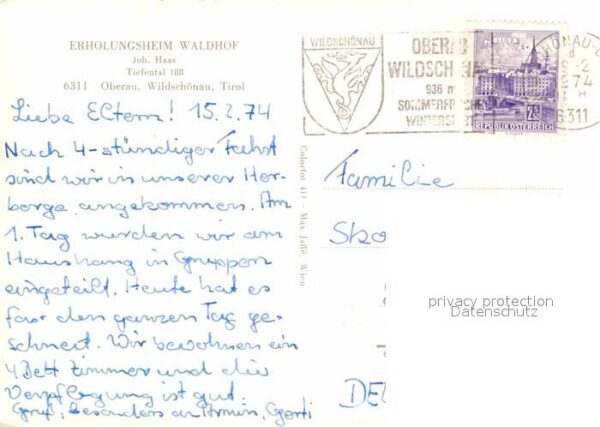 ERHOLUNGSHEIM WALDHOF
Joh. Haas
Tiefental 188
6311 Oberau, Wildschönau, Tirol
Liebe Eltern! 15.2.74
Nach 4-stündiger Fahrt
sind wir in unserer Her-
berge angekommen. Am
1. Tag wurden wir am
Haushang in Gruppen
eingeteilt. Heute hat es
fast den ganzen Tag ge-
schneit. Wir bewohnen ein
4 Bett Zimmer und die
Verpflegung ist gut.
Gruß, besonders an Armin, Gerti
Colorfot 411 - Max Jaffé, Wien
WILDSCHÖNAU
OBERAU
WILDSCHÖNAU
936 m
SOMMERFRISCHE
WINTERSPORT
LINZ
2S
REPUBLIK ÖSTERREICH
74
6311
Familie
privacy protection
Datenschutz